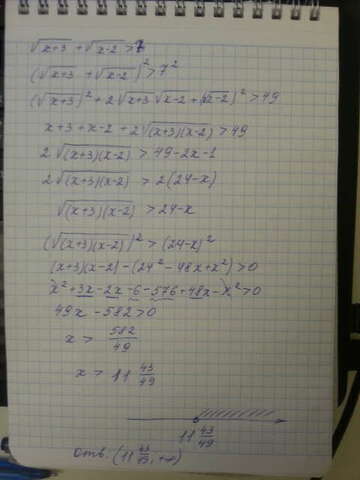 √(x+3) + √(x-2) > 7
(√(x+3) + √(x-2))² > 7²
(√(x+3))² + 2√(x+3) √(x-2) + (√(x-2))² > 49
x+3 + x-2 + 2√((x+3)(x-2)) > 49
2√((x+3)(x-2)) > 49-2x-1
2√((x+3)(x-2)) > 2(24-x)
√((x+3)(x-2)) > 24-x
(√((x+3)(x-2)))² > (24-x)²
(x+3)(x-2) - (24² - 48x + x²) > 0
x² + 3x - 2x - 6 - 576 + 48x - x² > 0
49x - 582 > 0
x > 582/49
x > 11 43/49
11 43/49
Отв. (11 43/49, +∞)